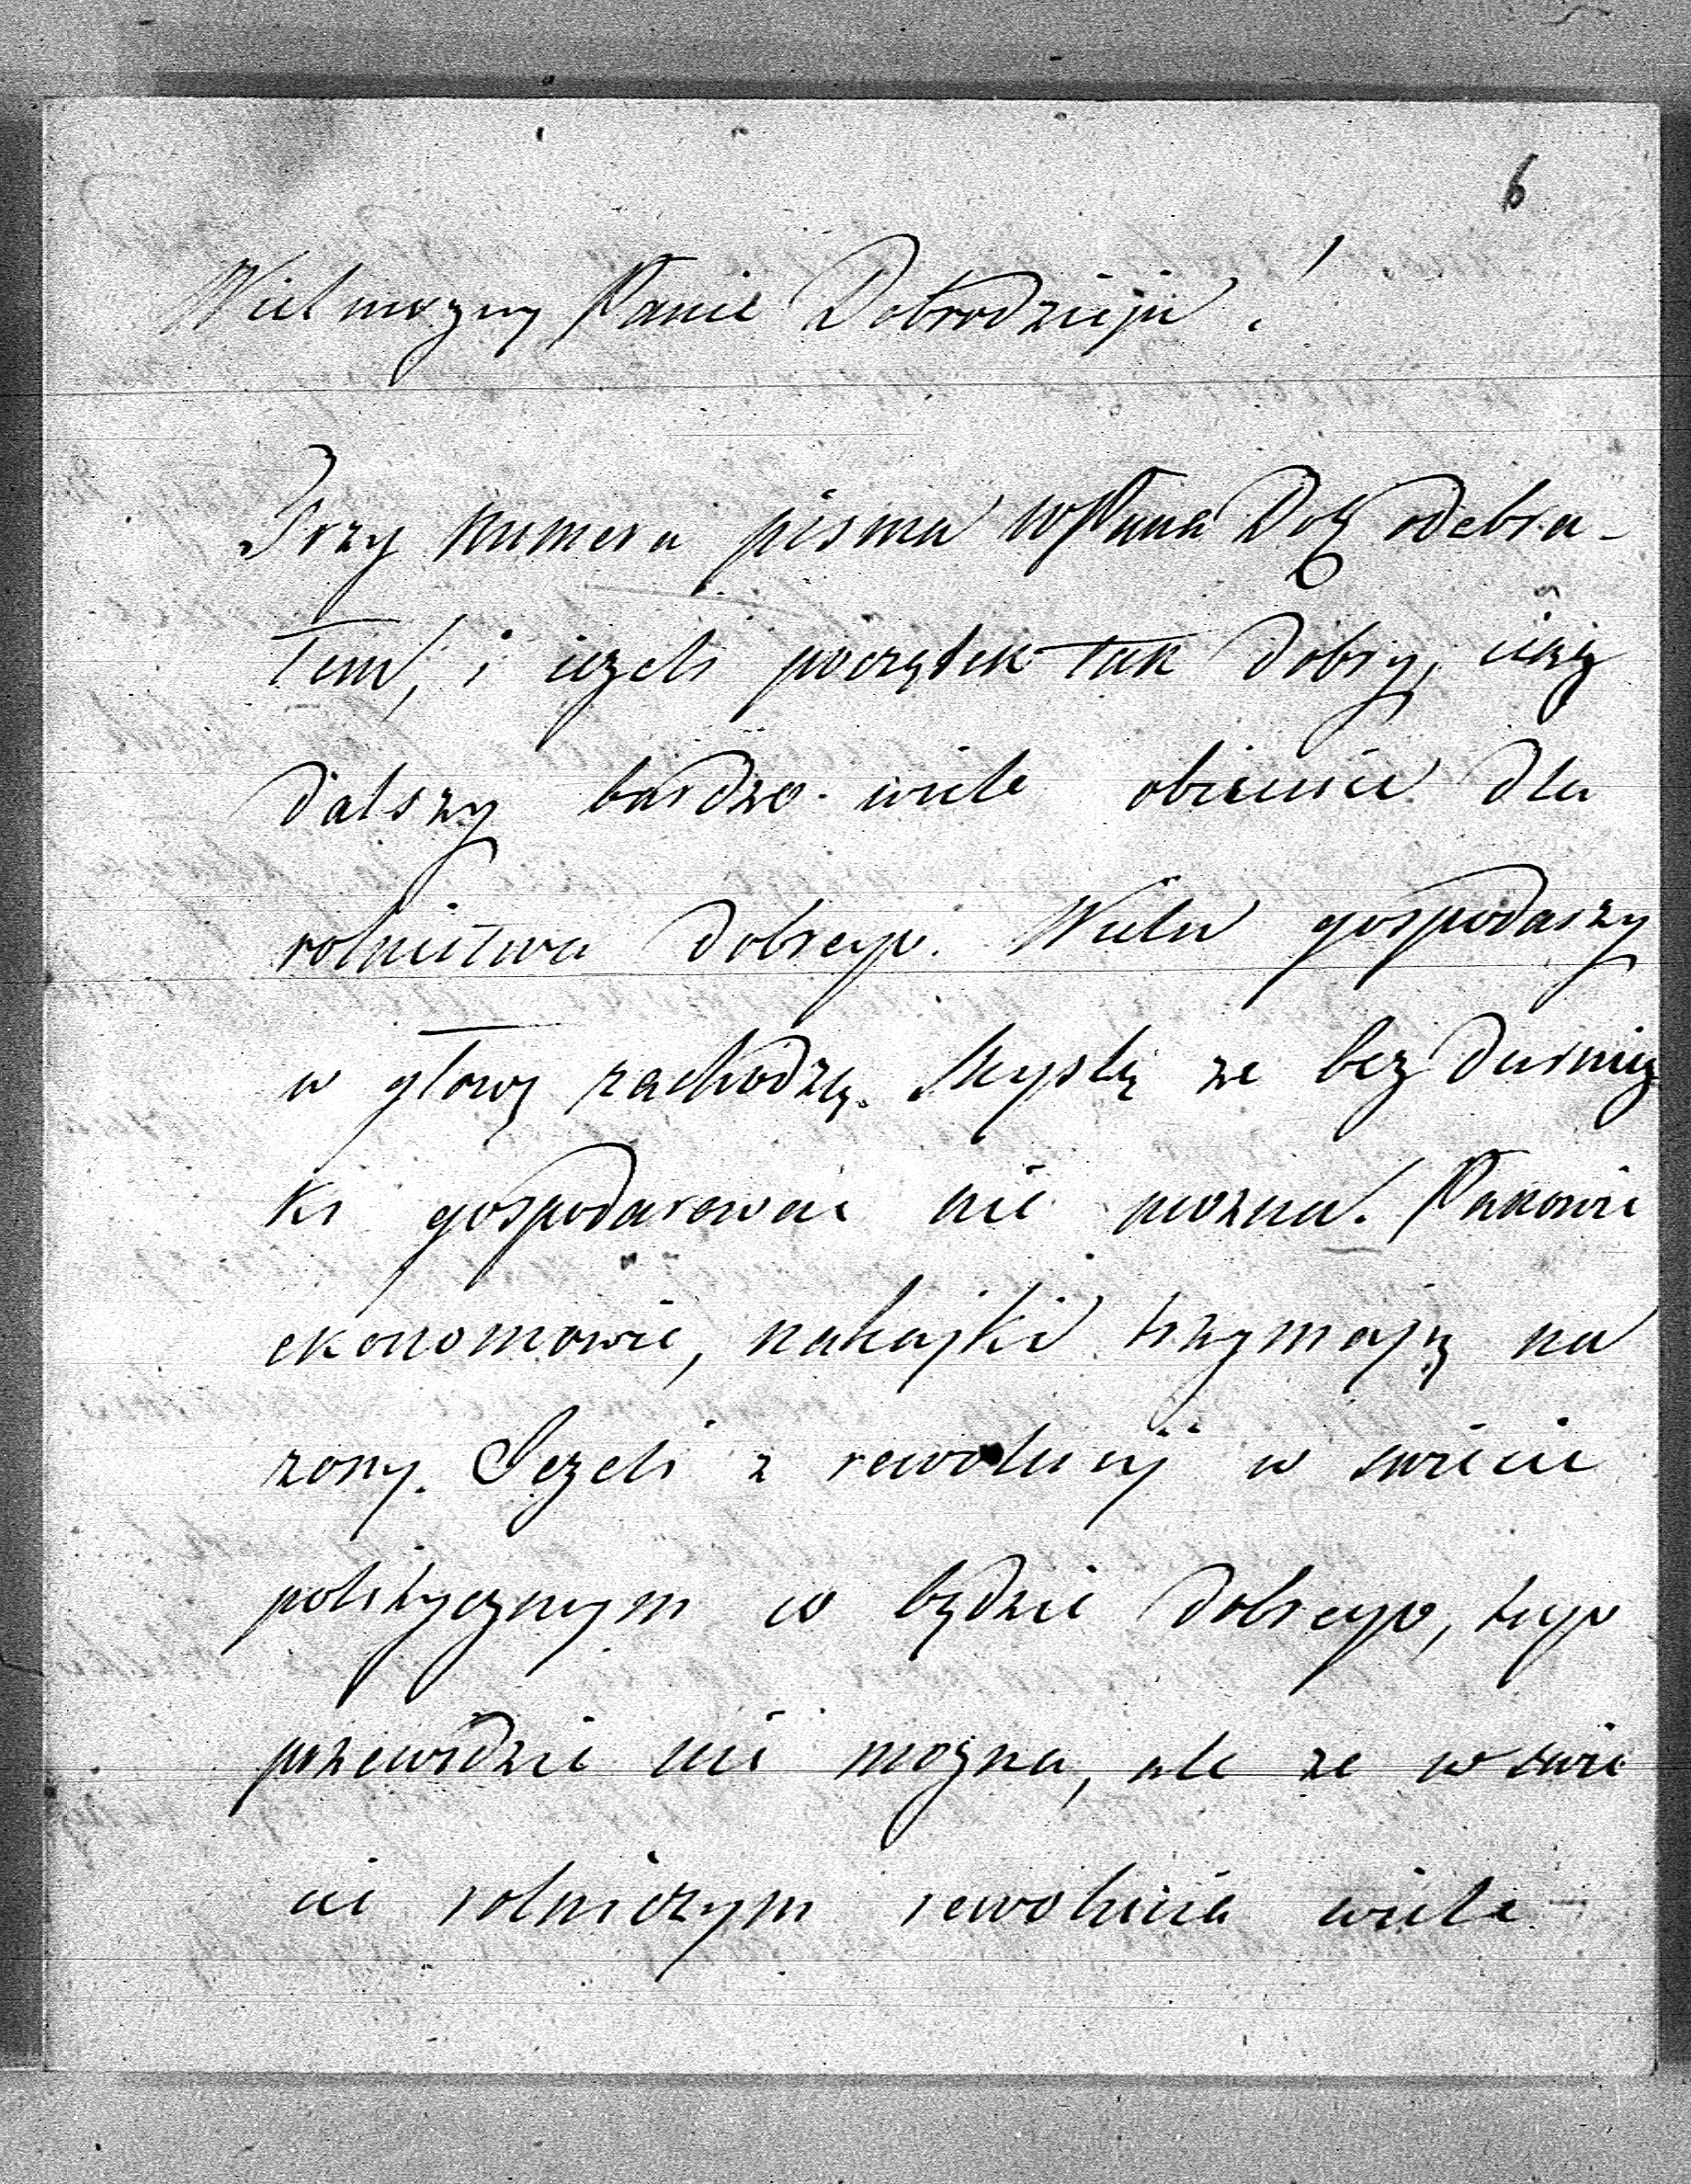 6
Wielmozny Panie Dobrodzieju!
Trzy numera pisma WPana Dob odebra-
łem, i ieżeli początek tak dobry, ciąg
dalszy bardzo wiele obiecuie dla
rolnictwa dobrego. Wielu gospodarzy
w głowę zachodzą. Myslą ze bez
ki gospodarowac nie mozna. Panowie
ekonomowie, nahajki trzymają na
zony. Jeżeli z rewolucyi w swiecie
politycznym co będzie dobrego, tego
przewidzieć nie można, ale ze w swie
cie rolniczym rewolucia wiele